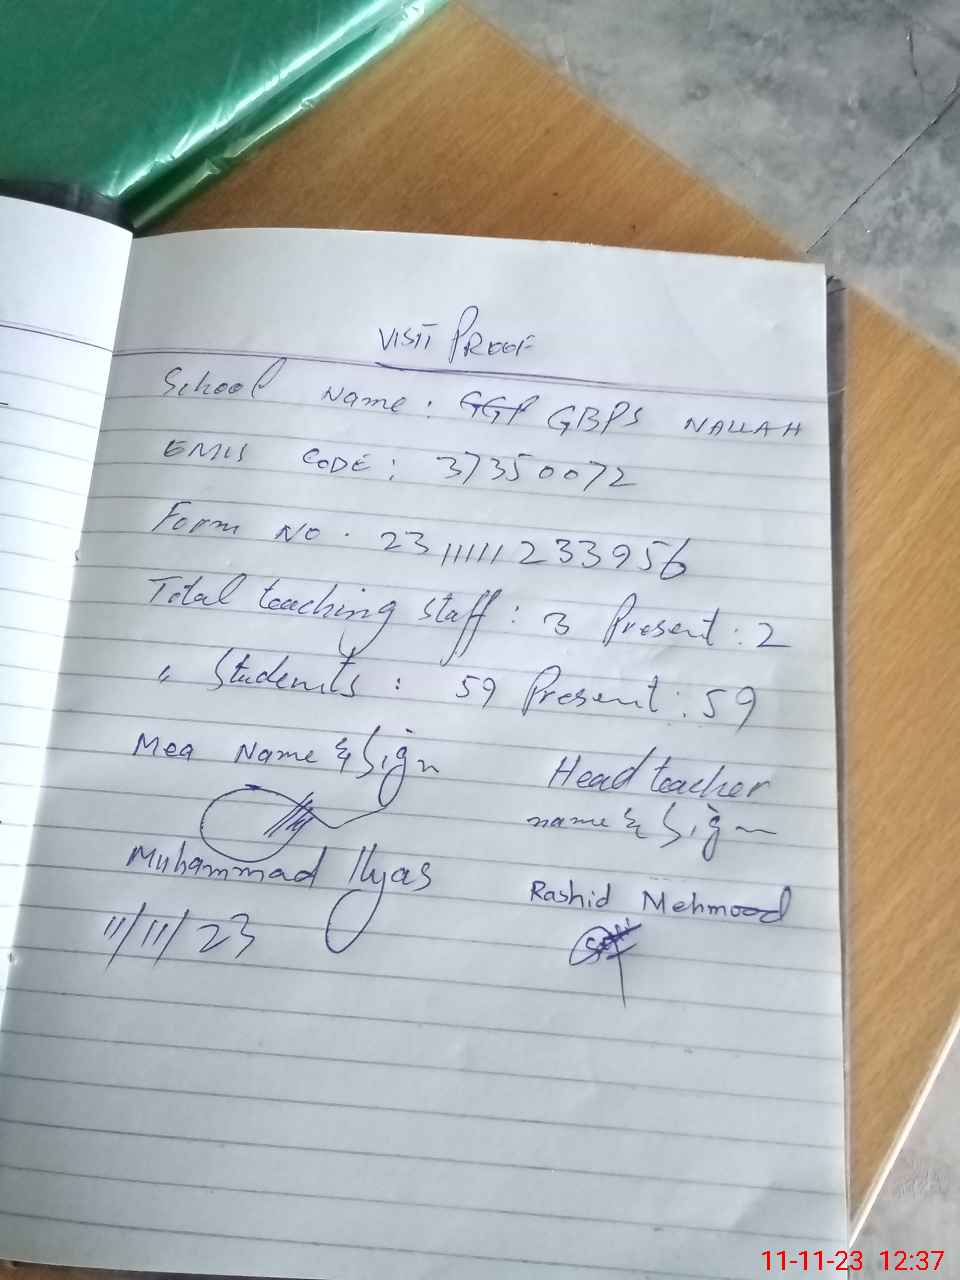 VISIT PROOF
School Name : GGP GBPS NALLAH
EMIS CODE : 37350072
Form NO . 231111233956
Total teaching staff : 3 Present : 2
" Students : 59 Present : 59
Mea Name & Sign
Head teacher
name & Sign
Muhammad Ilyas
Rashid Mehmood
11/11/23
11-11-23 12:37